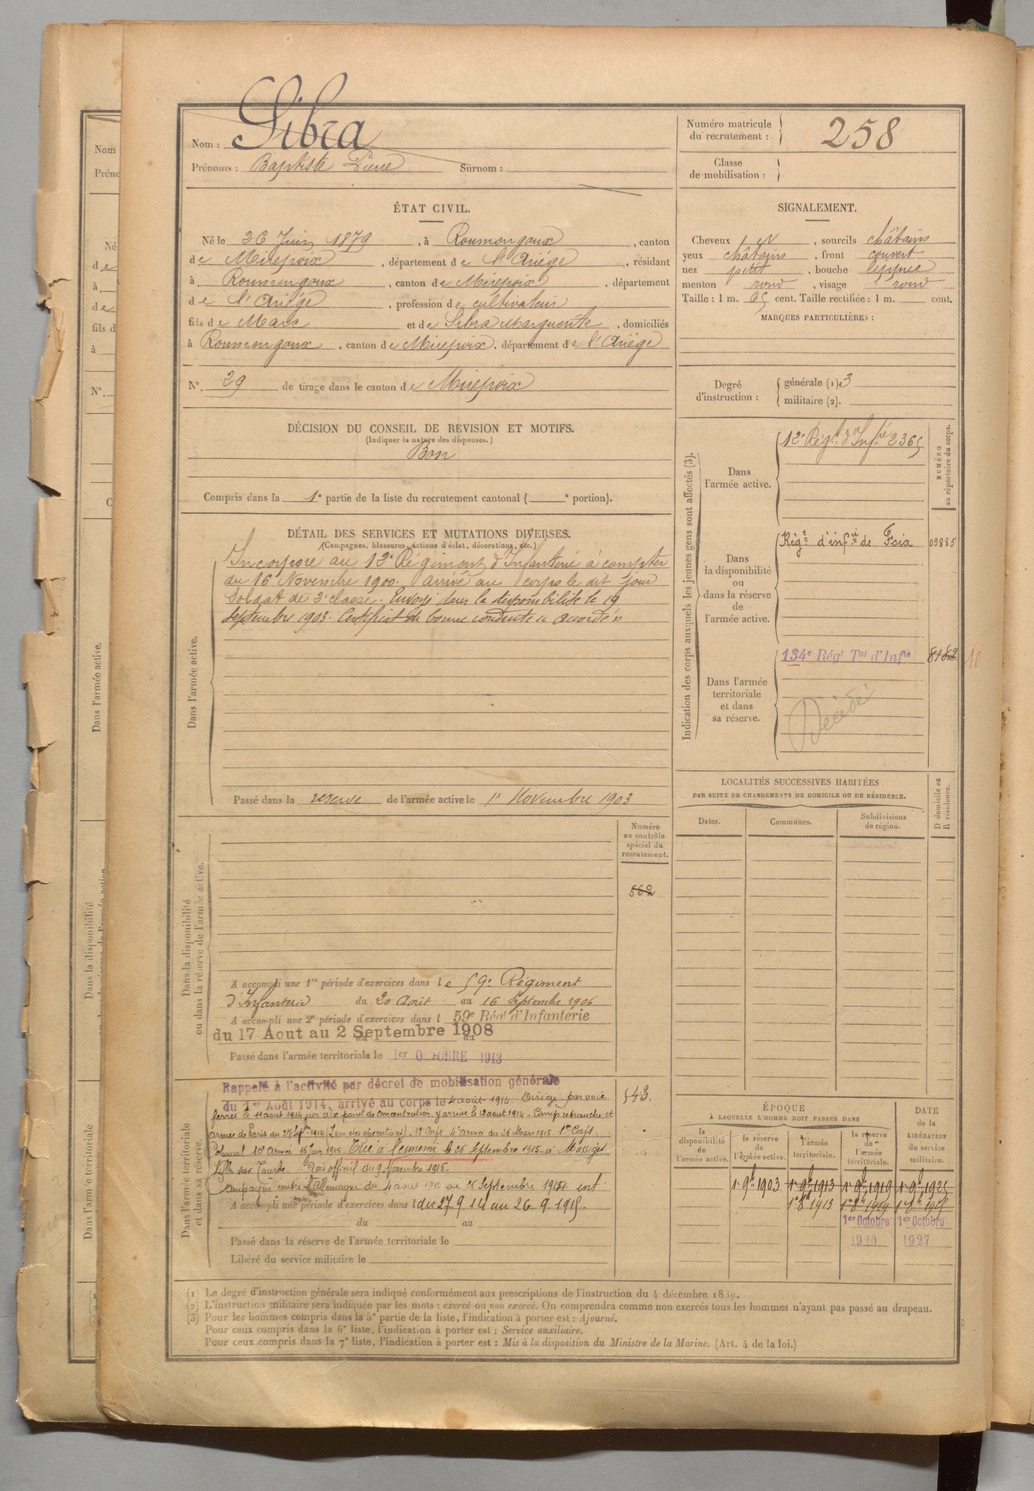 Nom : Sibra
Prénoms : Baptiste Pierre Surnom :
Numéro matricule du recrutement : 258
Classe de mobilisation :
ÉTAT CIVIL.
Né le 26 Juin 1879, à Roumengoux, canton
de Mirepoix, département de l'Ariége, résidant
à Roumengoux, canton de Mirepoix, département
de l'Ariége, profession de cultivateur
fils de Marc et de Sibra Marguerite, domiciliés
à Roumengoux, canton de Mirepoix, département de l'Ariége
N° 29 de tirage dans le canton de Mirepoix
SIGNALEMENT.
Cheveux et, sourcils châtains
yeux châtains, front couvert
nez petit, bouche moyenne
menton rond, visage rond
Taille : 1 m. 65 cent. Taille rectifiée : 1 m. cent.
MARQUES PARTICULIÈRES :
Degré d'instruction : générale (1) 3
militaire (2).
DÉCISION DU CONSEIL DE REVISION ET MOTIFS.
(Indiquer la nature des dispenses.)
Bon
Compris dans la 1e partie de la liste du recrutement cantonal ( e portion).
DÉTAIL DES SERVICES ET MUTATIONS DIVERSES.
(Campagnes, blessures, actions d'éclat, décorations, etc.)
Dans l'armée active.
Incorporé au 12e Régiment d'Infanterie à compter
du 16 Novembre 1900. arrivé au corps le dit jour
Soldat de 2e classe. Envoyé dans la disponibilité le 19
Septembre 1903. Certificat de bonne conduite "accordé"
Passé dans la réserve de l'armée active le 1er Novembre 1903
Indication des corps auxquels les jeunes gens sont affectés (3).
NUMÉRO au répertoire du corps.
Dans l'armée active.
12e Régt d'Infie 2365
Dans la disponibilité ou dans la réserve de l'armée active.
Régt d'infie de Foix 03885
Dans l'armée territoriale et dans sa réserve.
134e Régt Tal d'Infie 8182 10
Décédé
LOCALITÉS SUCCESSIVES HABITÉES
PAR SUITE DE CHANGEMENTS DE DOMICILE OU DE RÉSIDENCE.
Dates. Communes. Subdivisions de région. D domicile ou R résidence.
Numéro au contrôle spécial du recrutement.
562
Dans la disponibilité ou dans la réserve de l'armée active.
A accompli une 1re période d'exercices dans le 59e Régiment
d'Infanterie du 20 Août au 16 Septembre 1906
A accompli une 2e période d'exercices dans l 59e Régt d'Infanterie
du 17 Aout au 2 Septembre 1908
Passé dans l'armée territoriale le 1er OCTOBRE 1913
Dans l'armée territoriale et dans sa réserve.
Rappelé à l'activité par décret de mobilisation générale
du 1er Août 1914, arrivé au corps le 4 août 1914. Dirigé par voie
ferrée le 11 août 1914 sur le point de concentration, y arrive le 12 août 1914 - Camp retranché et
543.
Tué à l'ennemi le 26 Septembre 1915 à Massiges
Ville sur Tourbe. Avis officiel du 9 Novembre 1915.
Campagne contre l'Allemagne du 4 août 1914 au 26 Septembre 1915. int
A accompli une période d'exercices dans l du 27 9 14 au 26. 9. 1915.
du au
Passé dans la réserve de l'armée territoriale le
Libéré du service militaire le
ÉPOQUE
À LAQUELLE L'HOMME DOIT PASSER DANS
la disponibilité de l'armée active. la réserve de l'armée active. l'armée territoriale. la réserve de l'armée territoriale. DATE de la LIBÉRATION du service militaire.
1er 9bre 1903 1er 9bre 1913 1er 9bre 1919 1er 9bre 1925
1er 8bre 1913
1er Octobre 1920 1er Octobre 1927
(1) Le degré d'instruction générale sera indiqué conformément aux prescriptions de l'instruction du 4 décembre 1889.
(2) L'instruction militaire sera indiquée par les mots : exercé ou non exercé. On comprendra comme non exercés tous les hommes n'ayant pas passé au drapeau.
(3) Pour les hommes compris dans la 5e partie de la liste, l'indication à porter est : Ajourné.
Pour ceux compris dans la 6e liste, l'indication à porter est : Service auxiliaire.
Pour ceux compris dans la 7e liste, l'indication à porter est : Mis à la disposition du Ministre de la Marine. (Art. 4 de la loi.)